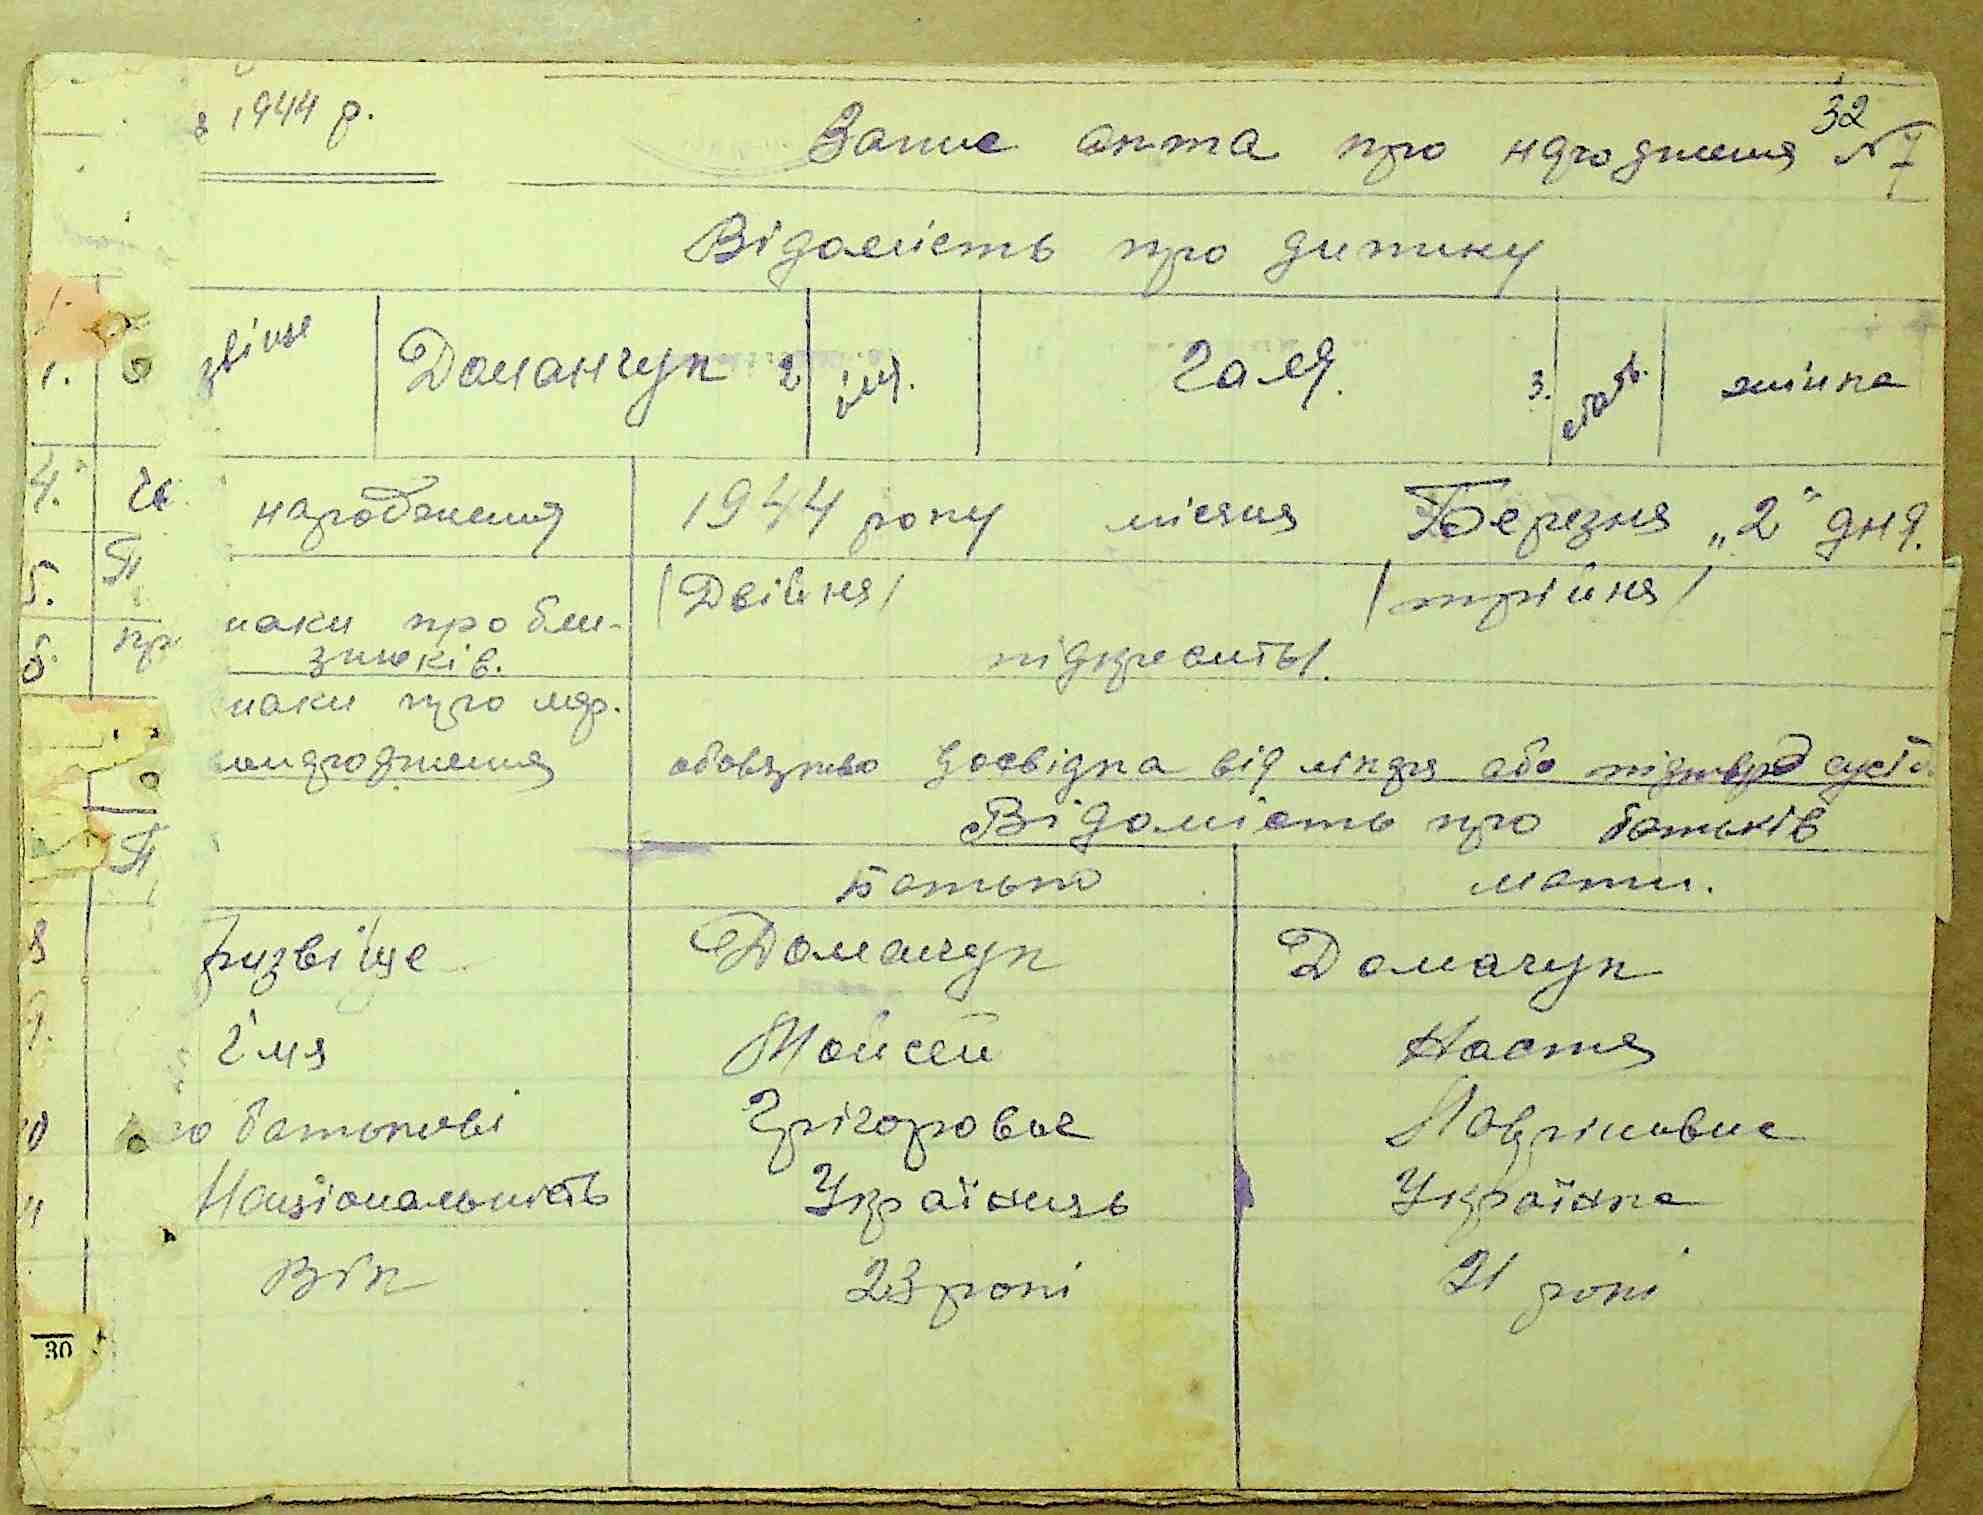 1944 р.
32
Запис акта про народження № 7
Відомість про дитину
1. звіще Доманчук 2 імя. Галя. 3. стать. жінка
4. народження 1944 року місяця Березня „2" дня.
5. наки про бли- /Двійня/ /трійня/
6. знюків. підкреслить/.
наки про мер.
обовязково досвідка від лікаря або
Відомість про батьків
Батько мати.
8 ризвіще Домачук Домачук
9. і'мя Мойсей Настя
10 по батькові Григоровіч
11 Національність Українець Українка
Вік 23 рокі 21 рокі
30